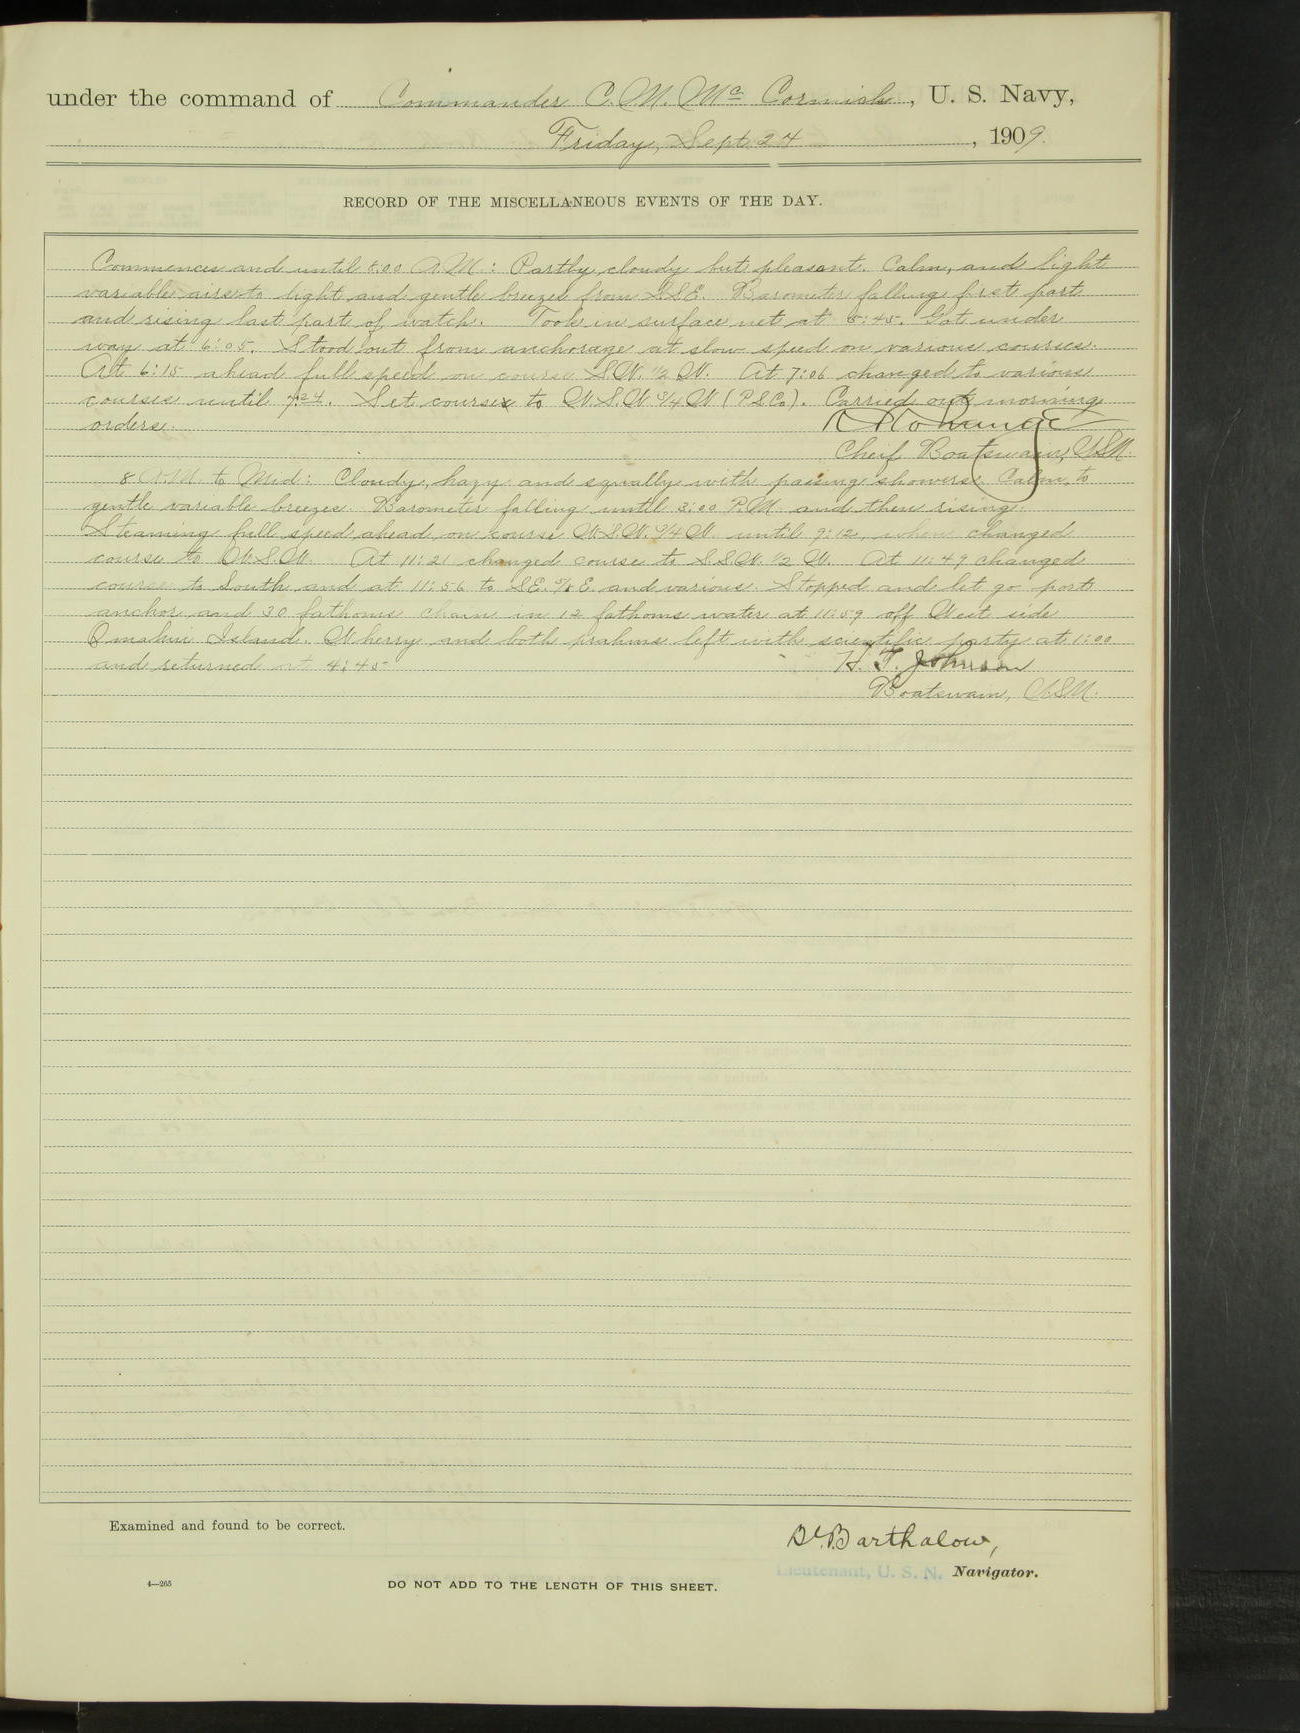 under the command of Commander C. M. Mc Cormick, U. S. Navy,
Friday, Sept 24, 1909.
RECORD OF THE MISCELLANEOUS EVENTS OF THE DAY.
Commences and until 8.00 A.M.: Partly cloudy but pleasant. Calm, and light
variable airs to light and gentle breezes from SSE. Barometer falling first part
and rising last part of watch. Took in surface net at 5:45. Got under
way at 6:05. Stood out from anchorage at slow speed on various courses.
At 6:15 ahead full speed on course S.W. 1/2 W. At 7:06 changed to various
courses until 7:24. Set course to W.S.W 3/4 W (P.S.C.). Carried out morning
orders.
Cheif Boatswain, USN.
8 A.M. to Mid: Cloudy, hazy and squally with passing showers. Calm, to
gentle variable breezes. Barometer falling until 3:00 P.M. and then rising.
Steaming full speed ahead on course W.S.W. 3/4 W. until 9:12, when changed
course to W.S.W. At 11:21 changed course to S.S.W. 1/2 W. At 11:49 changed
course to South and at 11:56 to SE. E. and various. Stopped and let go port
anchor and 30 fathoms chain in 12 fathoms water at 11:59 off West side
Island. Wherry and both prahms left with scientific party at 1:00
and returned at 4:45
H. F. Johnson
Boatswain, USN.
Examined and found to be correct.
Barthalow,
Lieutenant, U. S. N. Navigator.
4—265
DO NOT ADD TO THE LENGTH OF THIS SHEET.